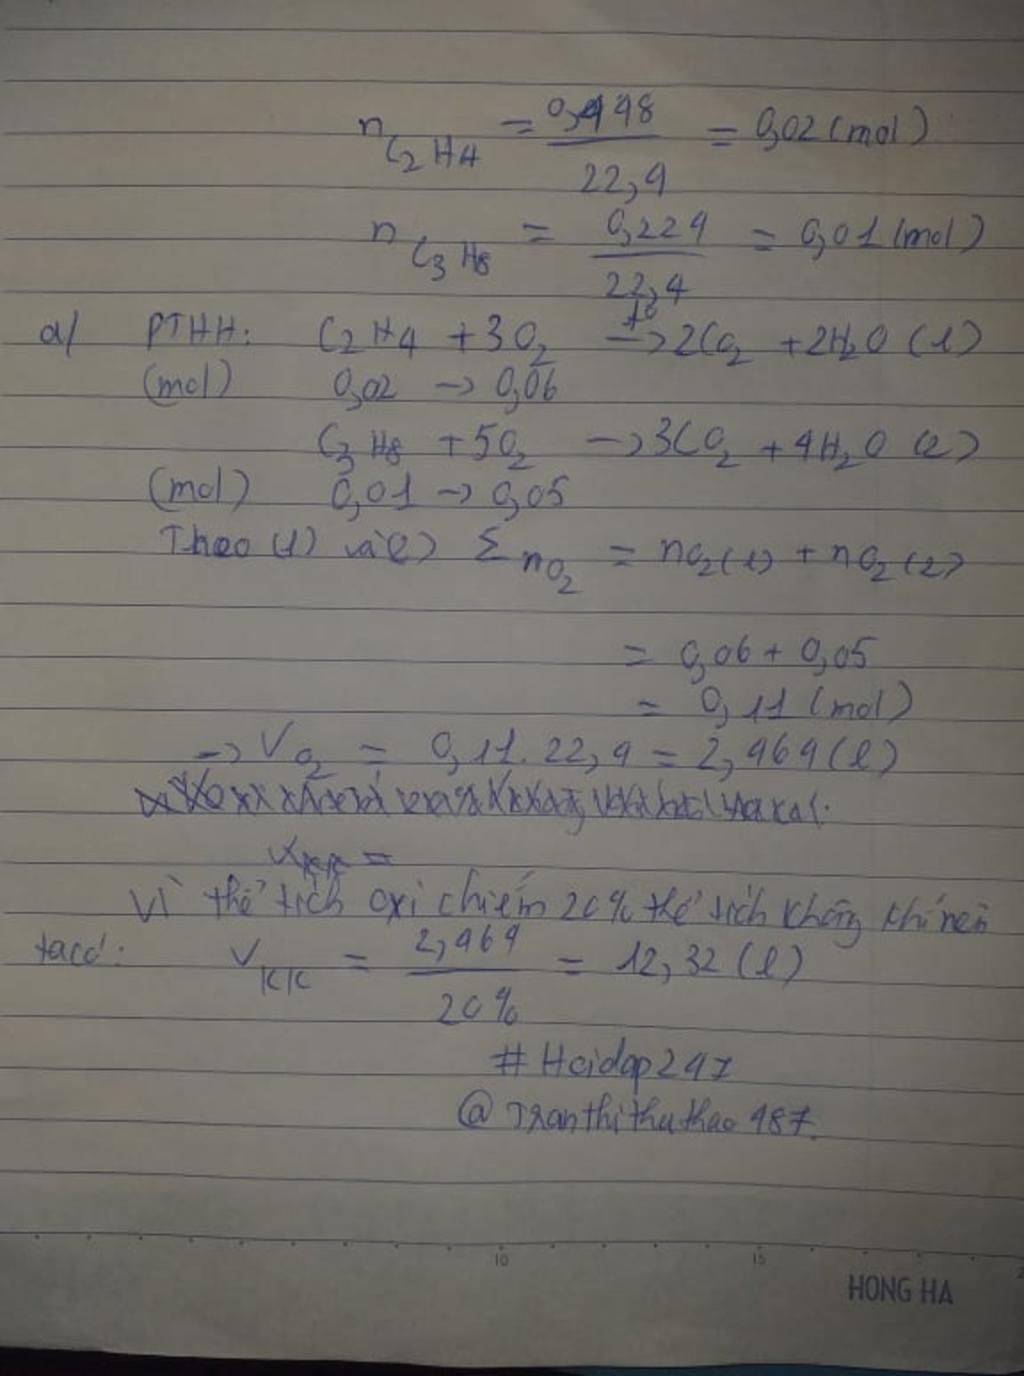 nC2H4 = 0,448 / 22,4 = 0,02 (mol)
nC3H8 = 0,224 / 22,4 = 0,01 (mol)
a/ PTHH: C2H4 + 3O2 t°-> 2CO2 + 2H2O (1)
(mol) 0,02 -> 0,06
C3H8 + 5O2 -> 3CO2 + 4H2O (2)
(mol) 0,01 -> 0,05
Theo (1) và (2) Σ nO2 = nO2(1) + nO2(2)
= 0,06 + 0,05
= 0,11 (mol)
-> VO2 = 0,11.22,4 = 2,464 (l)
VKK =
Vì thể tích oxi chiếm 20% thể tích không khí nên
ta có: VKK = 2,464 / 20% = 12,32 (l)
#Hoidap247
@Tranthithuthao487.
10 15
HONG HA